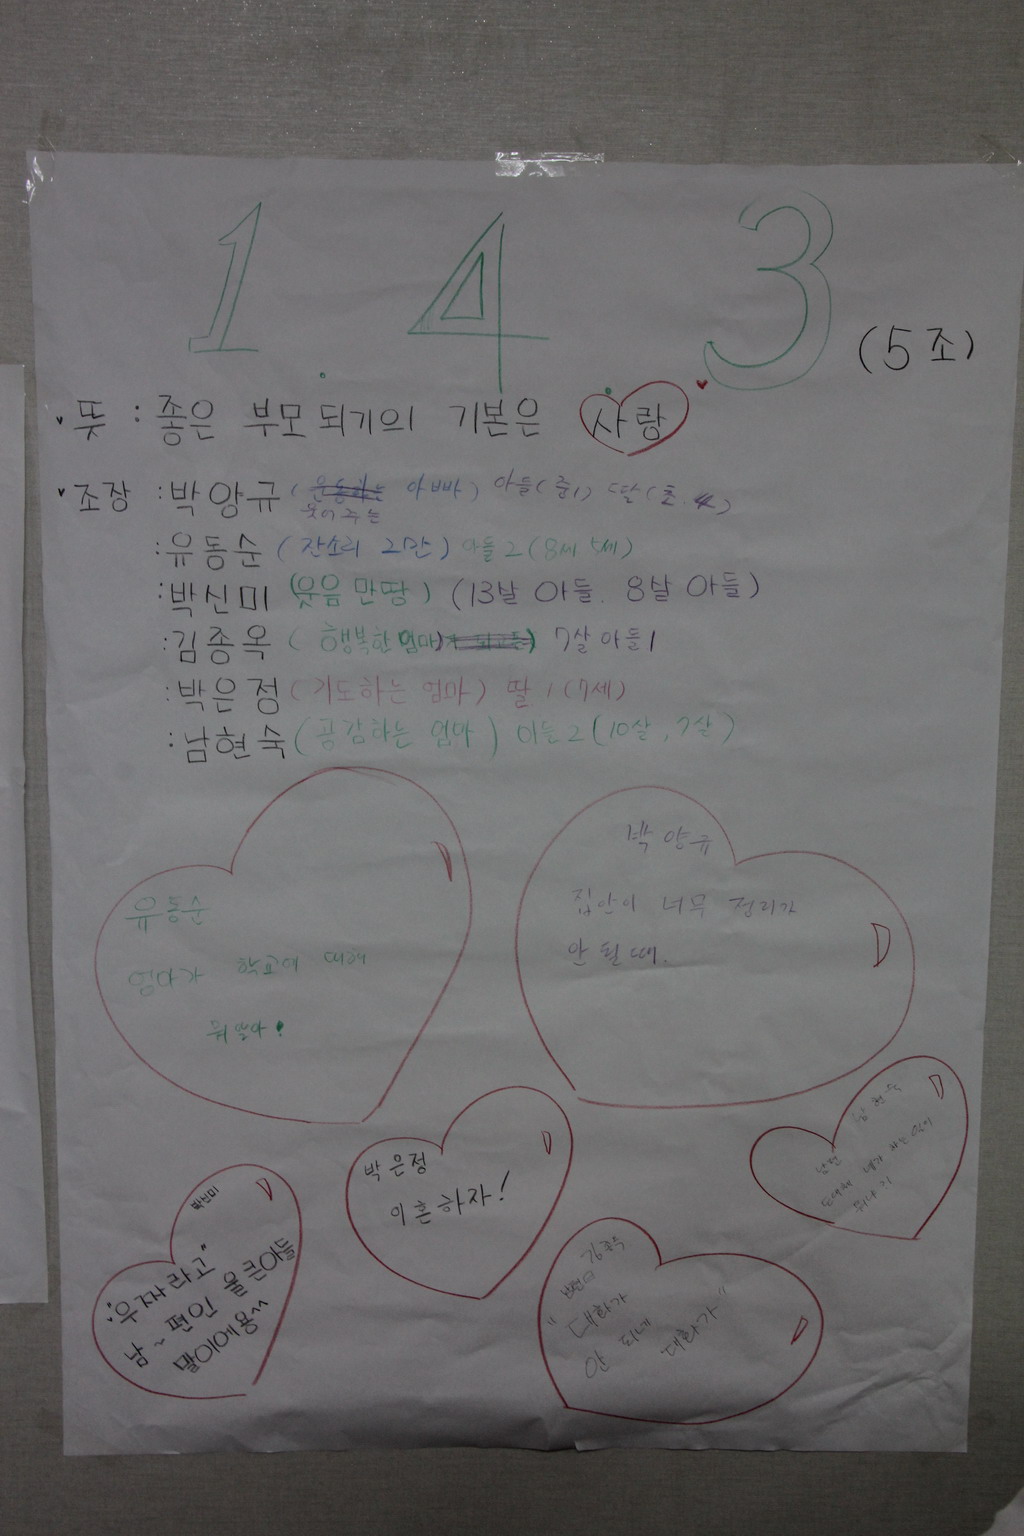 1 4 3
(5조)
뜻 : 좋은 부모 되기의 기본은 사랑
조장 : 박앙규 ( 아빠) 아들(중1) 딸(초.4)
웃어주는
: 유동순 (잔소리 2만) 아들2 (8세 5세)
: 박신미 (웃음 만땅) (13살 아들. 8살 아들)
: 김종옥 (행복한 엄마) 7살 아들1
: 박은정 (기도하는 엄마) 딸 1 (7세)
: 남현숙 (공감하는 엄마) 아들2 (10살, 7살)
유동순
엄마가 학교에 대해
뭐 알아!
박양규
집안이 너무 정리가
안 될 때.
박은정
이혼하자!
남현숙
남편
도대체 네가 하는 일이
뭐냐?
박신미
"우짜라고"
남~편인 울 큰아들
말이에용~
김종옥
"대화가
안 되네
대화가"